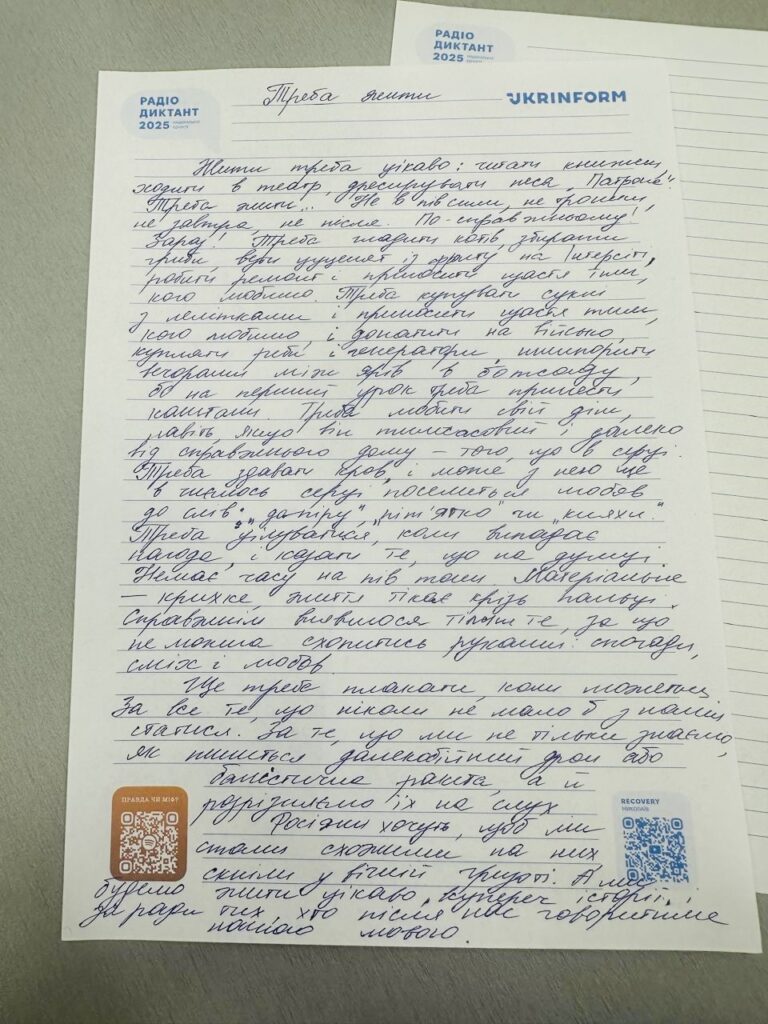 РАДІО
ДИКТАНТ
2025 НАЦІОНАЛЬНОЇ
ЄДНОСТІ
РАДІО
ДИКТАНТ
2025 НАЦІОНАЛЬНОЇ
ЄДНОСТІ
Треба жити
UKRINFORM
Жити треба цікаво: читати книжки,
ходити в театр, дресирувати песа „Патрона".
Треба жити... Не в пів сили, не трошки,
не завтра, не після. По-справжньому!
Зараз! Треба гладити котів, збирати
гриби, везти цуценят із фронту на Інтерсіті,
робити ремонт і приносити щастя тим,
кого любимо. Треба купувати сукні
з лелітками і приносити щастя тим,
кого любимо, і донатити на військо,
купляти реби і генератори, шпорити
вечорами між ярів в ботсаду,
бо на перший урок треба принести
каштани. Треба любити свій дім,
навіть, якщо він тимчасовий і далеко
від справжнього дому – того, що в серці.
Треба здавати кров, і може з нею ще
в чиємось серці поселиться любов
до слів: „допіру", „ріт'ятко" чи „кияхи."
Треба цілуватися, коли випадає
нагода, і казати те, що на душі.
Немає часу на пів тони. Матеріальне
– крихке, життя тікає крізь пальці.
Справжнім виявилося тільки те, за що
не можна схопитись руками: спогади,
сміх і любов.
Ще треба плакати, коли можеться
За все те, що ніколи не мало б з нами
статися. За те, що ми не тільки знаємо,
як пишеться далекобійний дрон або
балістична ракета, а й
розрізняємо їх на слух
Росіяни хочуть, щоб ми
стали схожими на них,
скніли у вічній гризоті. А ми
будемо жити цікаво, вуперек історії, і
за ради тих, хто після нас говоритиме
нашою мовою.
ПРАВДА ЧИ МІФ?
RECOVERY
МИКОЛАЇВ